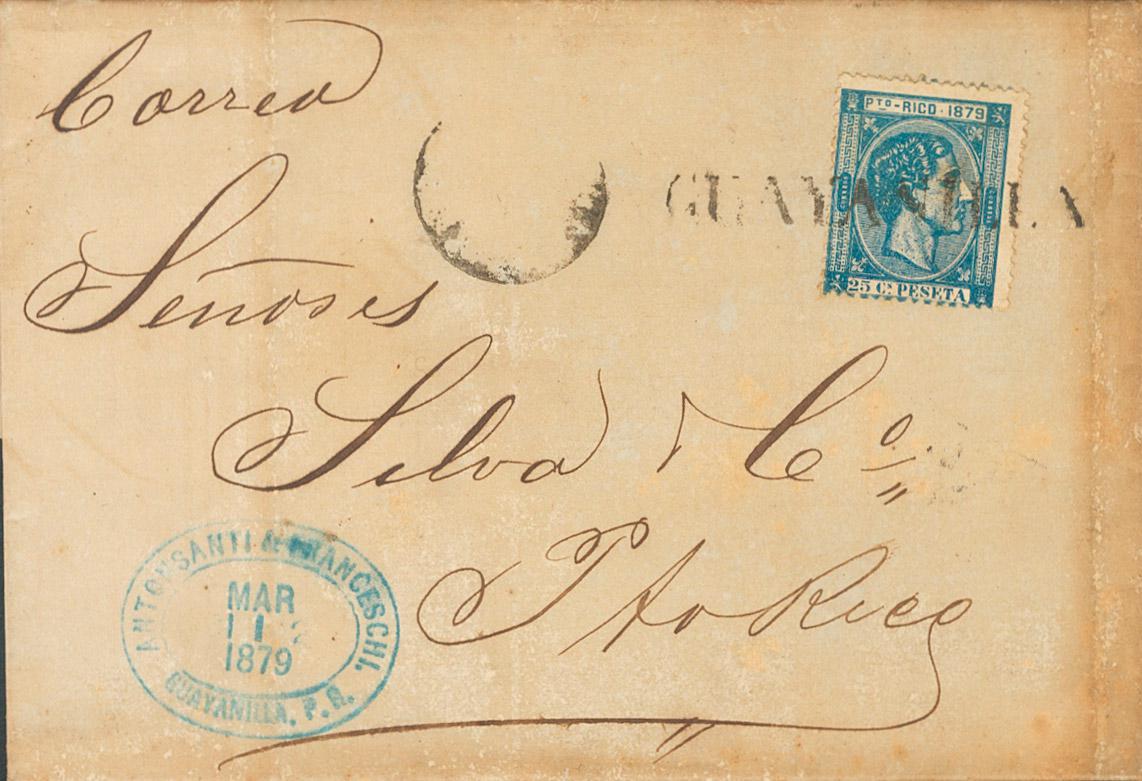 Correo
PTO-RICO · 1879
GUAYANILLA
25 Cs PESETA
Señores
Silva y Ca
Pto Rico
ANTONSANTI & FRANCESCHI.
MAR
11
1879
GUAYANILLA, P. R.